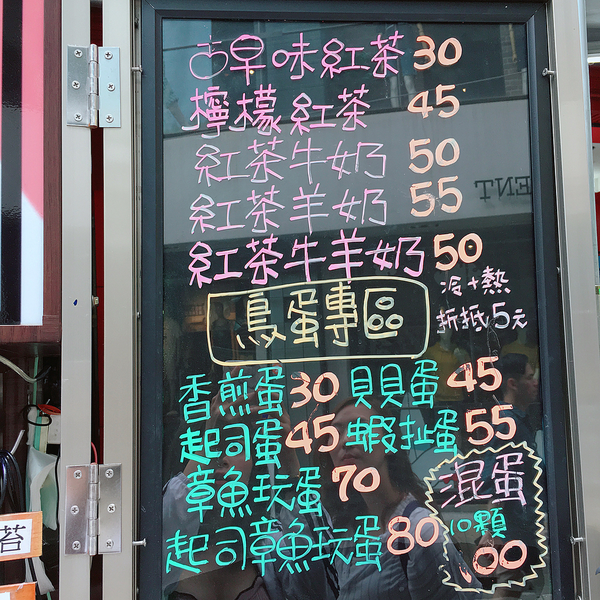 古早味紅茶 30
檸檬紅茶 45
紅茶牛奶 50
紅茶羊奶 55
紅茶牛羊奶 50
冷+熱
折抵5元
鳥蛋專區
香煎蛋30 貝貝蛋45
起司蛋45 蝦扯蛋55
章魚玩蛋 70
起司章魚玩蛋80
混蛋
10顆
100
苔